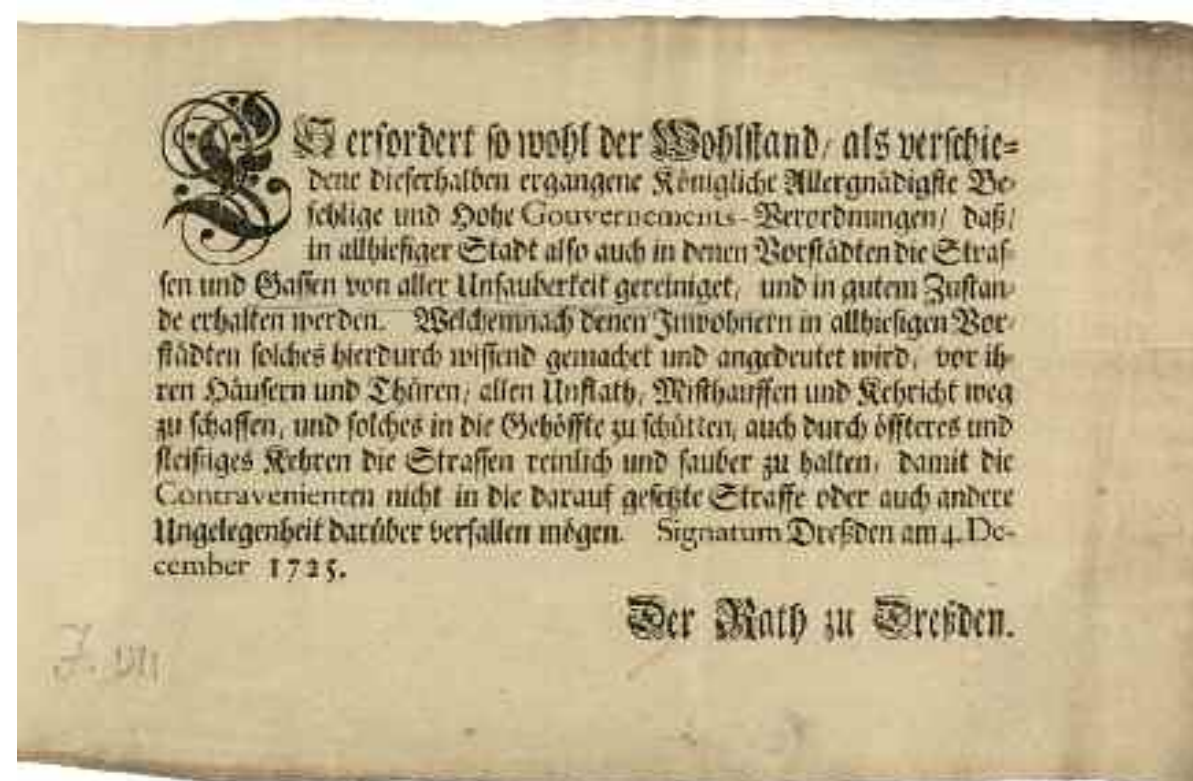 ES erfordert so wohl der Wohlstand/ als verschie=
dene dieserhalben ergangene Königliche Allergnädigste Be=
fehlige und Hohe Gouvernements-Verordnungen/ daß/
in allhiesiger Stadt also auch in denen Vorstädten die Stras=
sen und Gassen von aller Unsauberkeit gereiniget/ und in gutem Zustan=
de erhalten werden. Welchemnach denen Inwohnern in allhiesigen Vor=
städten solches hierdurch wissend gemachet und angedeutet wird/ vor ih=
ren Häusern und Thüren/ allen Unflath/ Misthauffen und Kehricht weg
zu schaffen/ und solches in die Gehöffte zu schütten/ auch durch öffteres und
fleißiges Kehren die Strassen reinlich und sauber zu halten/ damit die
Contravenienten nicht in die darauf gesetzte Straffe oder auch andere
Ungelegenheit darüber verfallen mögen. Signatum Dreßden am 4. De-
cember 1725.
Der Rath zu Dreßden.